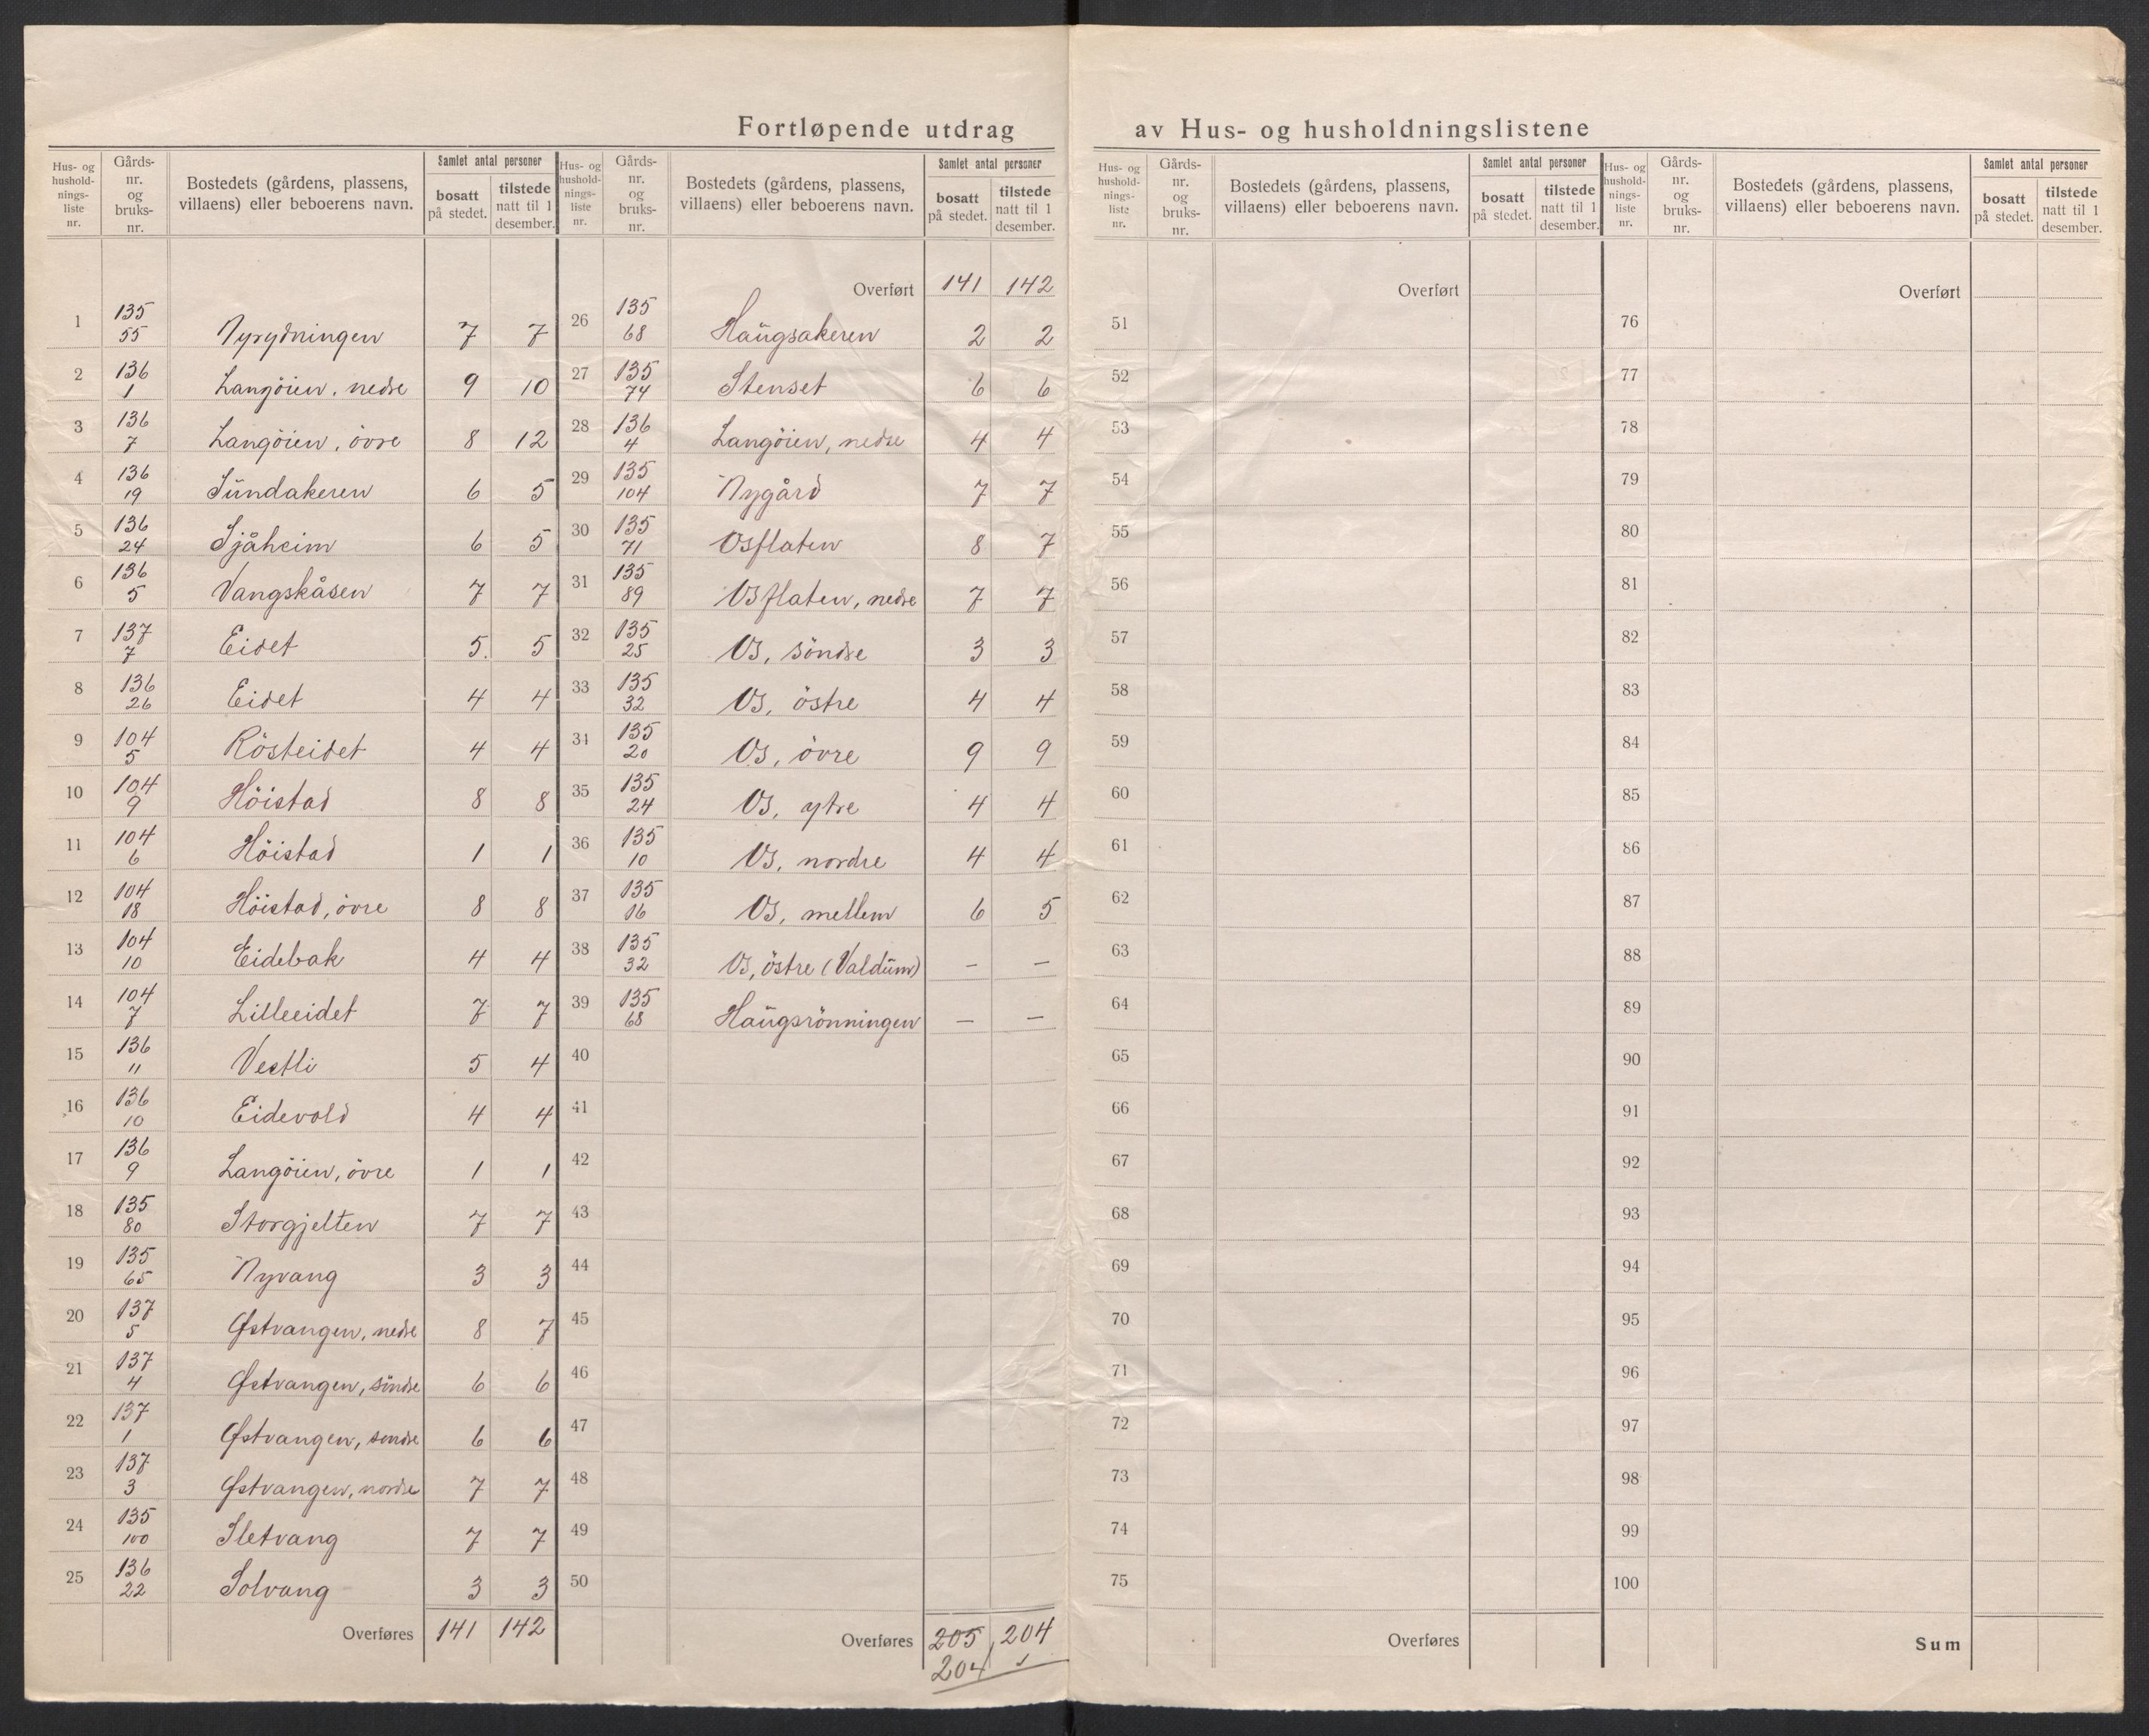 Fortløpende utdrag av Hus- og husholdningslistene
Hus- og hushold- nings- liste nr. | Gårds- nr. og bruks- nr. | Bostedets (gårdens, plassens, villaens) eller beboerens navn. | Samlet antal personer | bosatt på stedet. | tilstede natt til 1 desember.
1 135 55 Nyrydningen 7 7
2 136 1 Langöien, nedre 9 10
3 136 7 Langöien, övre 8 12
4 136 19 Sundakeren 6 5
5 136 24 Sjåheim 6 5
6 136 5 Vangskåsen 7 7
7 137 7 Eidet 5. 5
8 136 26 Eidet 4 4
9 104 5 Rösteidet 4 4
10 104 9 Höistad 8 8
11 104 6 Höistad 1 1
12 104 18 Höistad, övre 8 8
13 104 10 Eidebak 4 4
14 104 7 Lilleeidet 7 7
15 136 11 Vestli 5 4
16 136 10 Eidevold 4 4
17 136 9 Langöien, övre 1 1
18 135 80 Storgjelten 7 7
19 135 65 Nyvang 3 3
20 137 5 Østvangen, nedre 8 7
21 137 4 Østvangen, söndre 6 6
22 137 1 Østvangen, söndre 6 6
23 137 3 Østvangen, nordre 7 7
24 135 100 Sletvang 7 7
25 136 22 Solvang 3 3
Overføres 141 142
Hus- og hushold- nings- liste nr. | Gårds- nr. og bruks- nr. | Bostedets (gårdens, plassens, villaens) eller beboerens navn. | Samlet antal personer | bosatt på stedet. | tilstede natt til 1 desember.
Overført 141 142
26 135 68 Haugsakeren 2 2
27 135 74 Stenset 6 6
28 136 4 Langöien, nedre 4 4
29 135 104 Nygård 7 7
30 135 71 Osflaten 8 7
31 135 89 Osflaten, nedre 7 7
32 135 25 Os, söndre 3 3
33 135 32 Os, östre 4 4
34 135 20 Os, övre 9 9
35 135 24 Os, ytre 4 4
36 135 10 Os, nordre 4 4
37 135 16 Os, mellem 6 5
38 135 32 Os, östre (Valdum) – –
39 135 68 Haugsrönningen – –
40
41
42
43
44
45
46
47
48
49
50
Overføres 205 204
204
Hus- og hushold- nings- liste nr. | Gårds- nr. og bruks- nr. | Bostedets (gårdens, plassens, villaens) eller beboerens navn. | Samlet antal personer | bosatt på stedet. | tilstede natt til 1 desember.
Overført
51
52
53
54
55
56
57
58
59
60
61
62
63
64
65
66
67
68
69
70
71
72
73
74
75
Overføres
Hus- og hushold- nings- liste nr. | Gårds- nr. og bruks- nr. | Bostedets (gårdens, plassens, villaens) eller beboerens navn. | Samlet antal personer | bosatt på stedet. | tilstede natt til 1 desember.
Overført
76
77
78
79
80
81
82
83
84
85
86
87
88
89
90
91
92
93
94
95
96
97
98
99
100
Sum